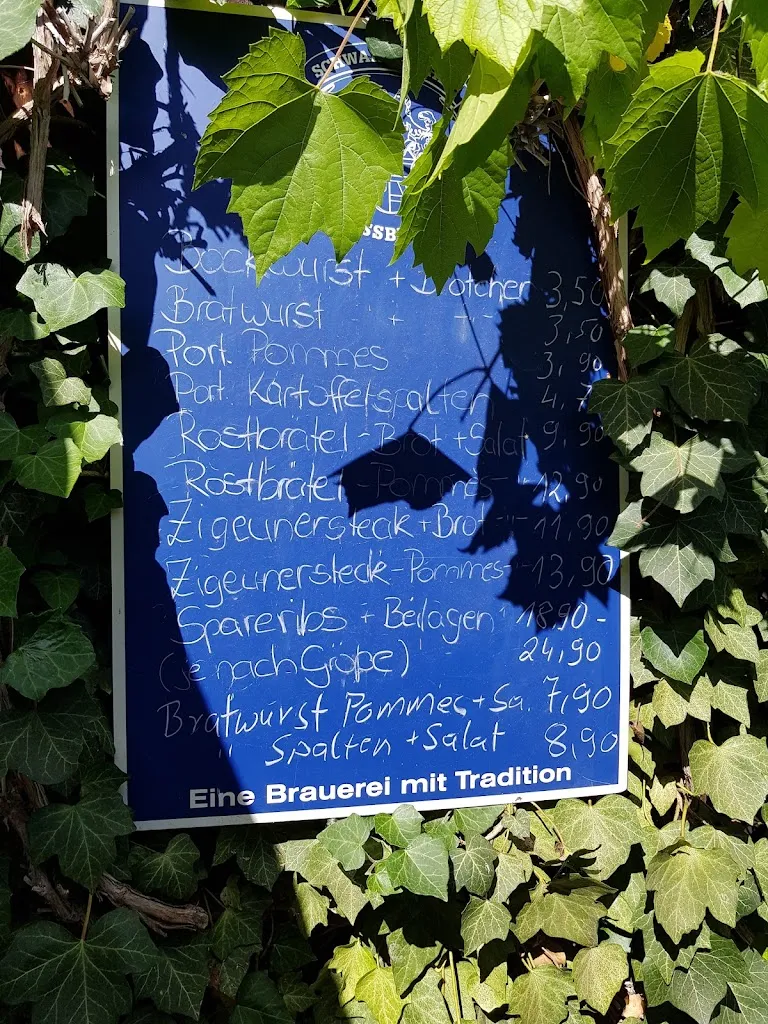 SCHWA
SSB
Bockwurst + Brötchen 3,50
Bratwurst " + " 3,50
Port. Pommes 3,90
Port. Kartoffelspalten 4,7
Rostbrätel - Brot + Salat 9,90
Rostbrätel - Pommes - " - 12,90
Zigeunersteak + Brot - " - 11,90
Zigeunersteak - Pommes - " - 13,90
Spareribs + Beilagen 18,90 -
(je nach Größe) 24,90
Bratwurst Pommes + Sa. 7,90
" Spalten + Salat 8,90
Eine Brauerei mit Tradition